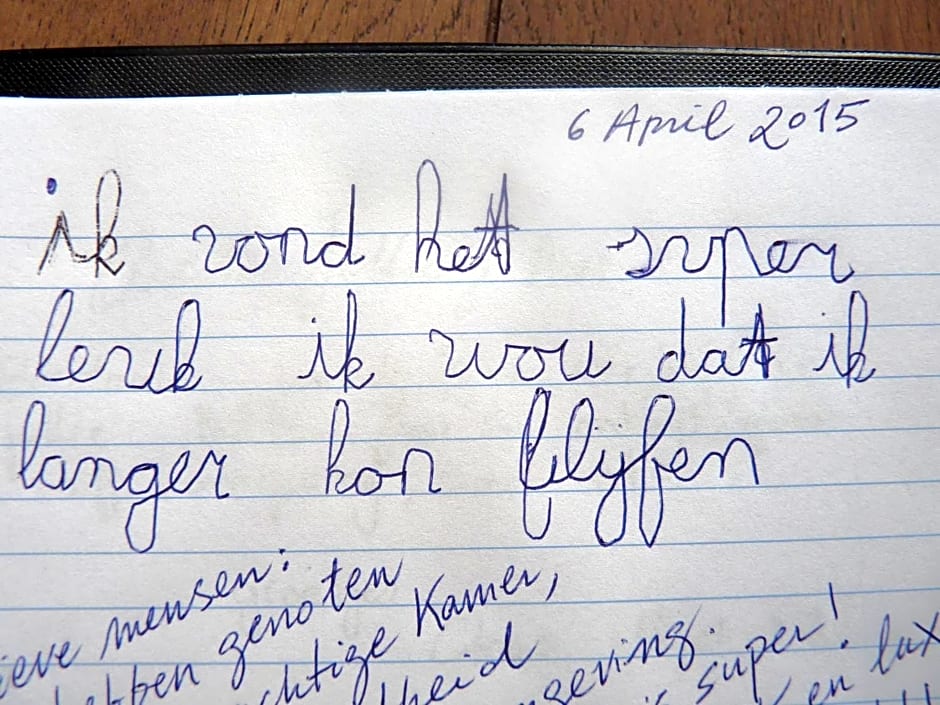 6 April 2015
ik vond het super
leuk ik wou dat ik
langer kon blijfen
ieve mensen:
ebben genoten
chtige Kamer,
heid
geving.
super!
en lux